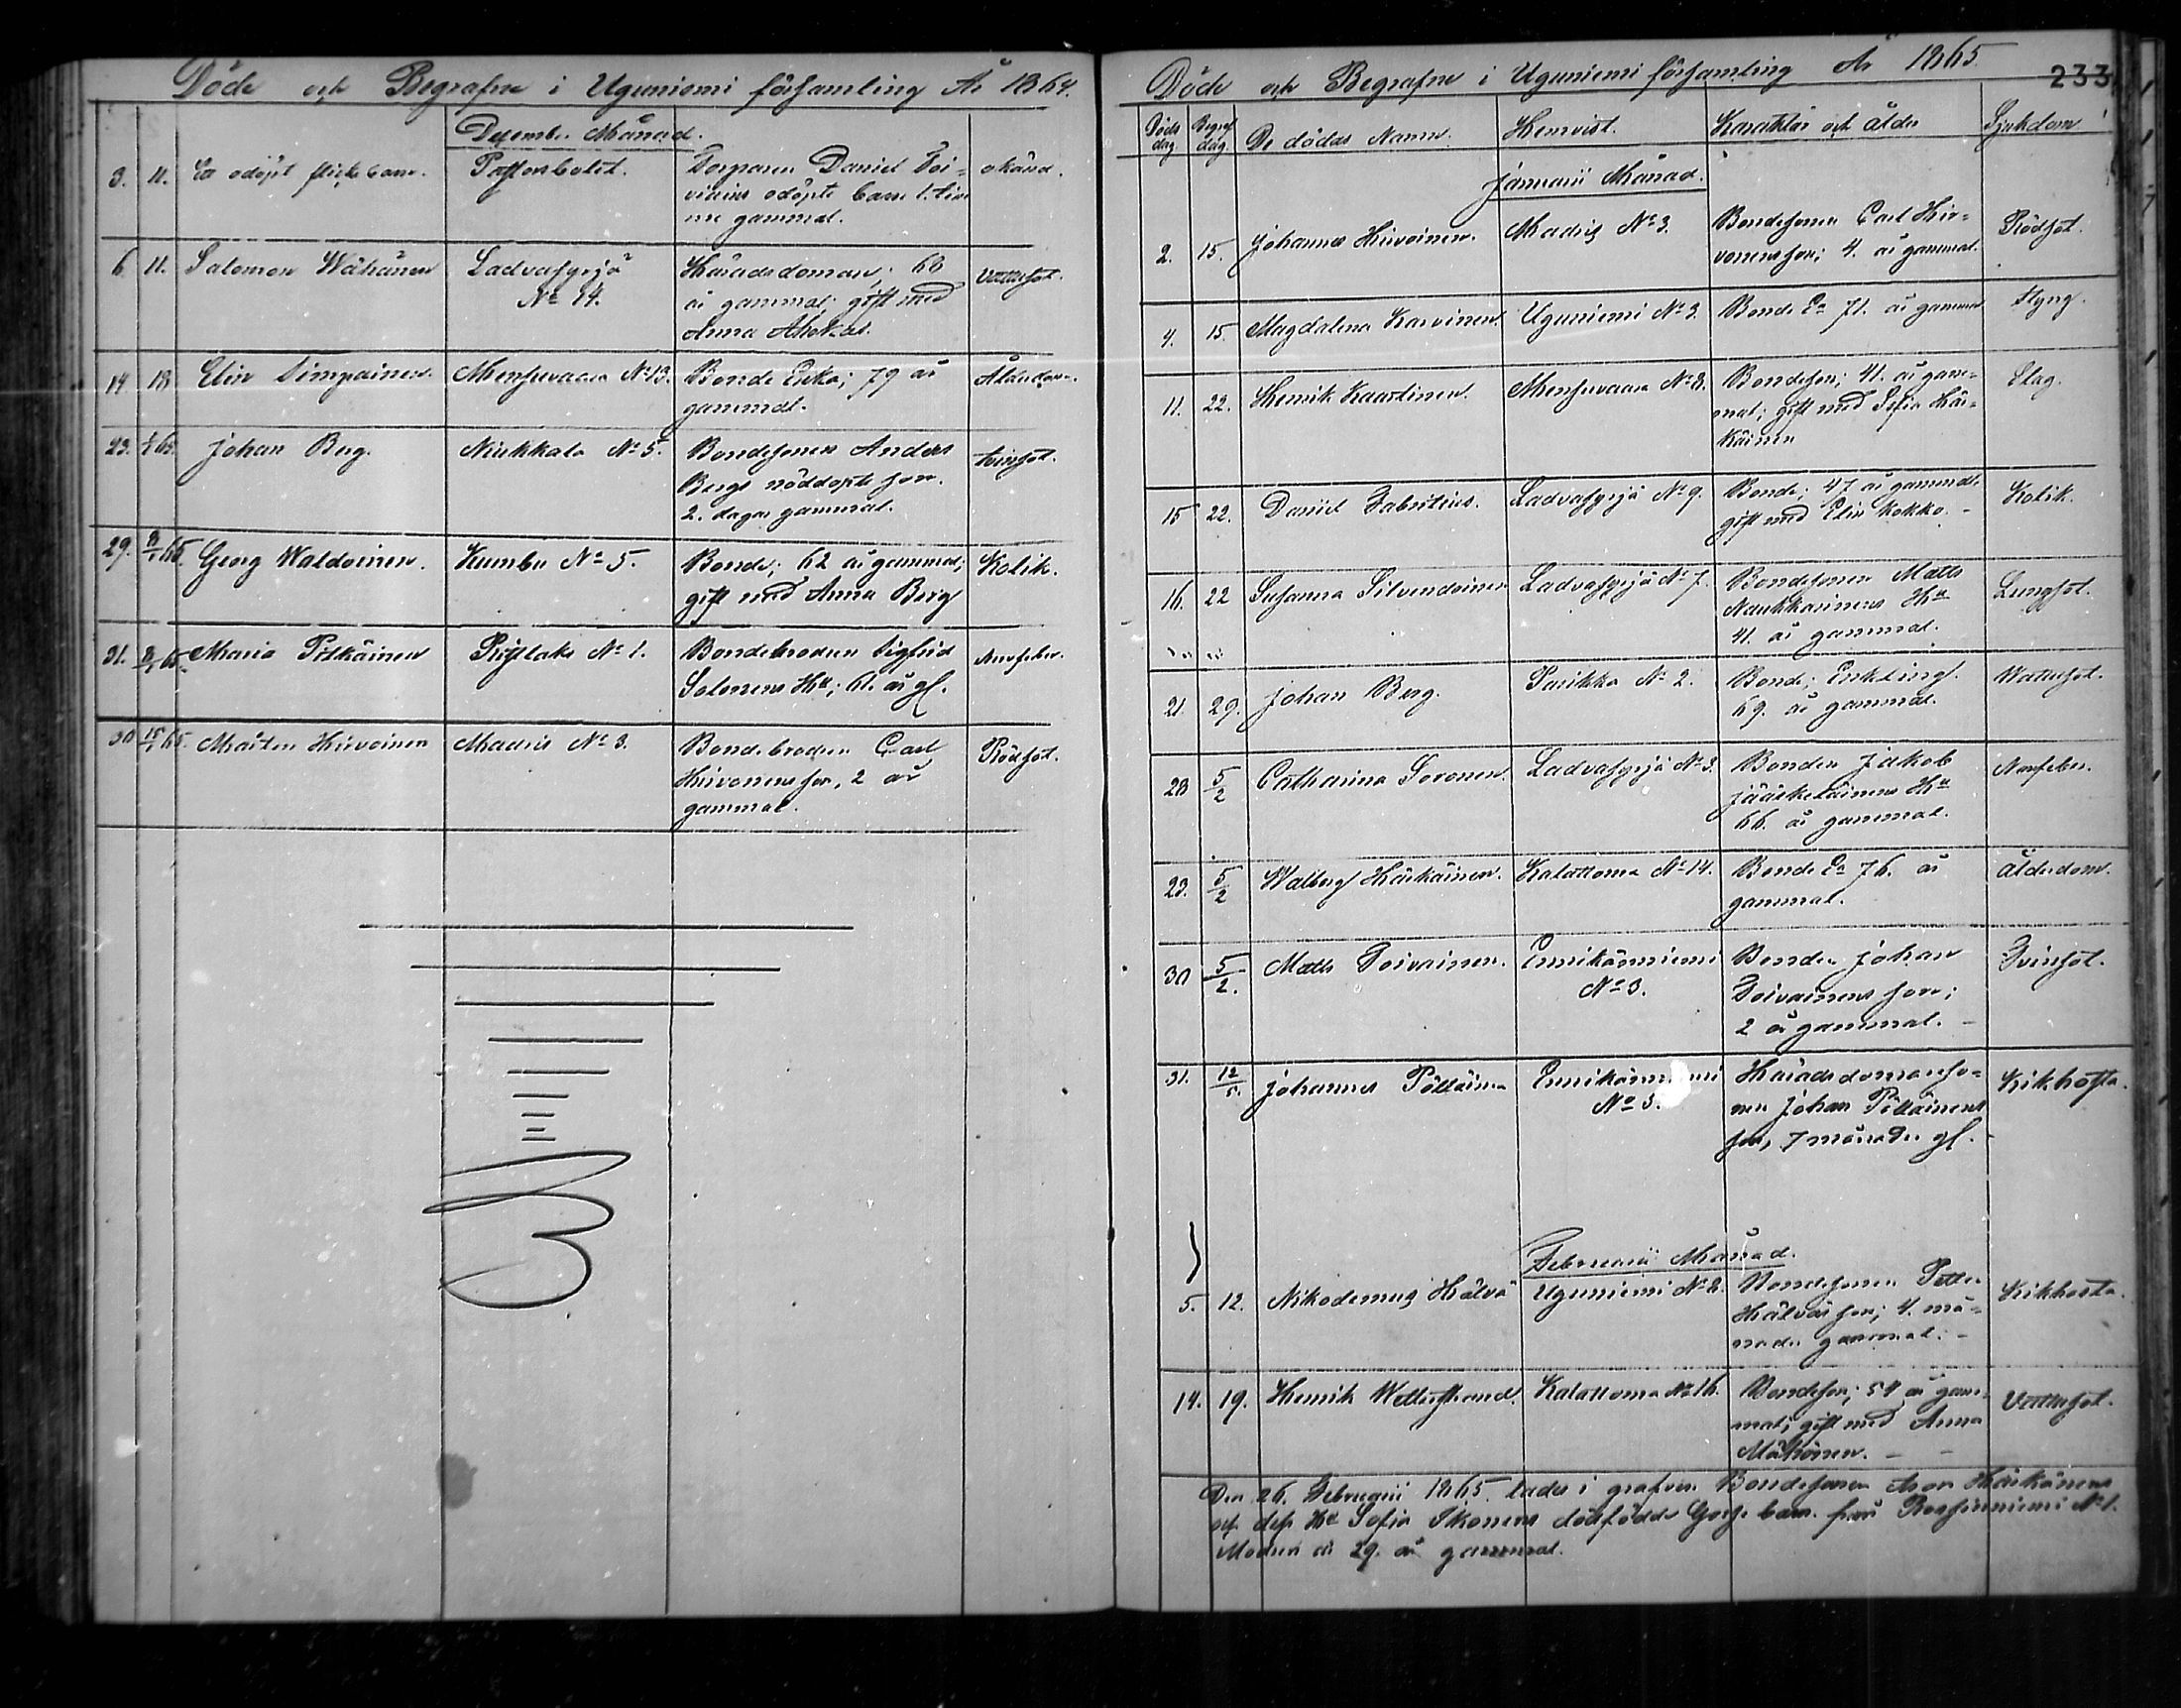 Döde och Begrafne i Uguniemi församling År 1864.
December Månad.
3. 11. Ett odöpt flickebarn. Torparen Daniel Toi=
viains odöpta barn 1. tim
me gammal.
okänd.
6. 11. Salomon Wähänen Ladvasyrjä
No 14.
Häradsdoman; 68
år gammal; gift med
Anna Ahokas.
Vattusot.
14. 18 Elin Simpainen. Mensuvaara No 13. Bonde Enka; 79 år
gammal.
Ålderdom.
23. Johan Berg. Niukkala No 5. Bondesonen Anders
Bergs nöddöpte son.
2. dagar gammal.
tvinsot.
29. 8/1 65. Georg Waldoinen. Kumbu No 5. Bonde; 62 år gammal;
gift med Anna Berg
Kolik.
31. 8/1 65. Maria Pitkäinen No 1. Bondebroden Sigfrid
Solonens Hu; 61. år gl.
Nerfeber.
30 15/1 65. Mårten Hirvoinen Madris No 3. Bondebroden Carl
Hirvonens son, 2 år
gammal.
Rödsot.
Döde och Begrafne i Uguniemi församling År 1865
233
Döds
dag. Begraf
dag. De dödas Namn. Hemvist. Karakter och ålder Sjukdom
Januarii Månad.
2. 15. Johannes Hirvoinen. Madris No 3. Bondesonen Carl Hir=
vonens son; 4. år gammal.
Rödsot.
4. 15. Magdalena Karvinen. Uguniemi No 3. Bonde Ea 71. år gammal Styng.
11. 22. Henrik Kaartinen. Mensuvaara No 8. Bondeson; 41. år gam=
mal; gift med Sofia Här=
käinen
Slag.
15 22. Daniel Fabritius. Ladvasyrjä No 9. Bonde; 47 år gammal
gift med Elin Kokko. -
Kolik.
16. 22 Susanna Silvendoinen Ladvasyrjä No 7. Bondesonen Matts
Naukkarinens Hu
41. år gammal.
Lungsot.
21. 29. Johan Berg. Parikka No 2. Bonde; Enkling.
69. år gammal.
Wattusot.
28 5/2 Catharina Soronen. Ladvasyrjä No 3. Bonden Jakob
Jääskeläinens Hu
66. år gammal.
Nerfeber.
23. 5/2 Walborg Härkäinen. Kalattoma No 14. Bonde Ea 76. år
gammal.
ålderdom.
30 5/2. Matts Toivainen. No 3. Bonden Johan
Toivainens son;
2 år gammal. -
Tvinsot.
31. Johannes Pöllänen No 3. Häradsdomanso=
nen Johan Pöllänens
son, 7 månader gl.
Kikhosta.
Februarii Månad.
5. 12. Nikodemus Hälvä Uguniemi No 2. Bondesonen Petter
Hälväs son; 4. må=
nader gammal. -
Kikhosta.
14. 19. Henrik Wetterstrand. Kalattoma No 16. Bondeson; 54 år gam=
mal; gift med Anna
Vattusot.
Den 26. Februarii 1865. lades i grafven Bondesonen Aron Härkönens
och dess Hu Sofia Ikonens dödfödde Gosse barn från No 1.
Modren är 29. år gammal.